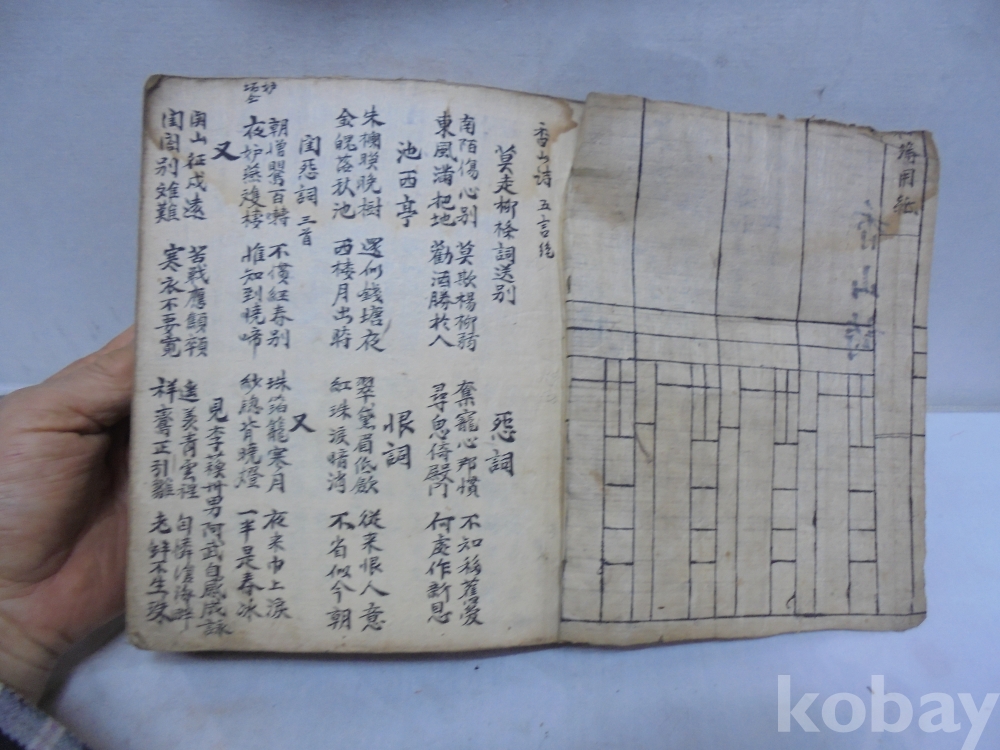 簿用紙
香山詩 五言絶
莫走柳條詞送別 怨詞
南陌傷心別 莫欺楊柳弱 奪寵心那慣 不知移舊愛
東風滿把地 勸酒勝於人 尋思倚殿門 何處作新恩
池西亭 恨詞
朱欄暎晩樹 還似錢塘夜 翠黛眉低斂 從来恨人意
金魄落秋池 西樓月出時 紅珠淚暗消 不省似今朝
閨怨詞 三首 又
朝憎鶯百囀 不慣紅春別 珠箔籠寒月 夜来巾上淚
夜妒燕雙棲 惟知到曉啼 紗窓背曉燈 一半是春冰
又 見李蘓州男阿武自感成詠
關山征戍遠 苦戰應顦顇 遙羨青雲裡 自憐滄海畔
閨閤別離難 寒衣不要寬 祥鸞正引雛 老蚌不生珠